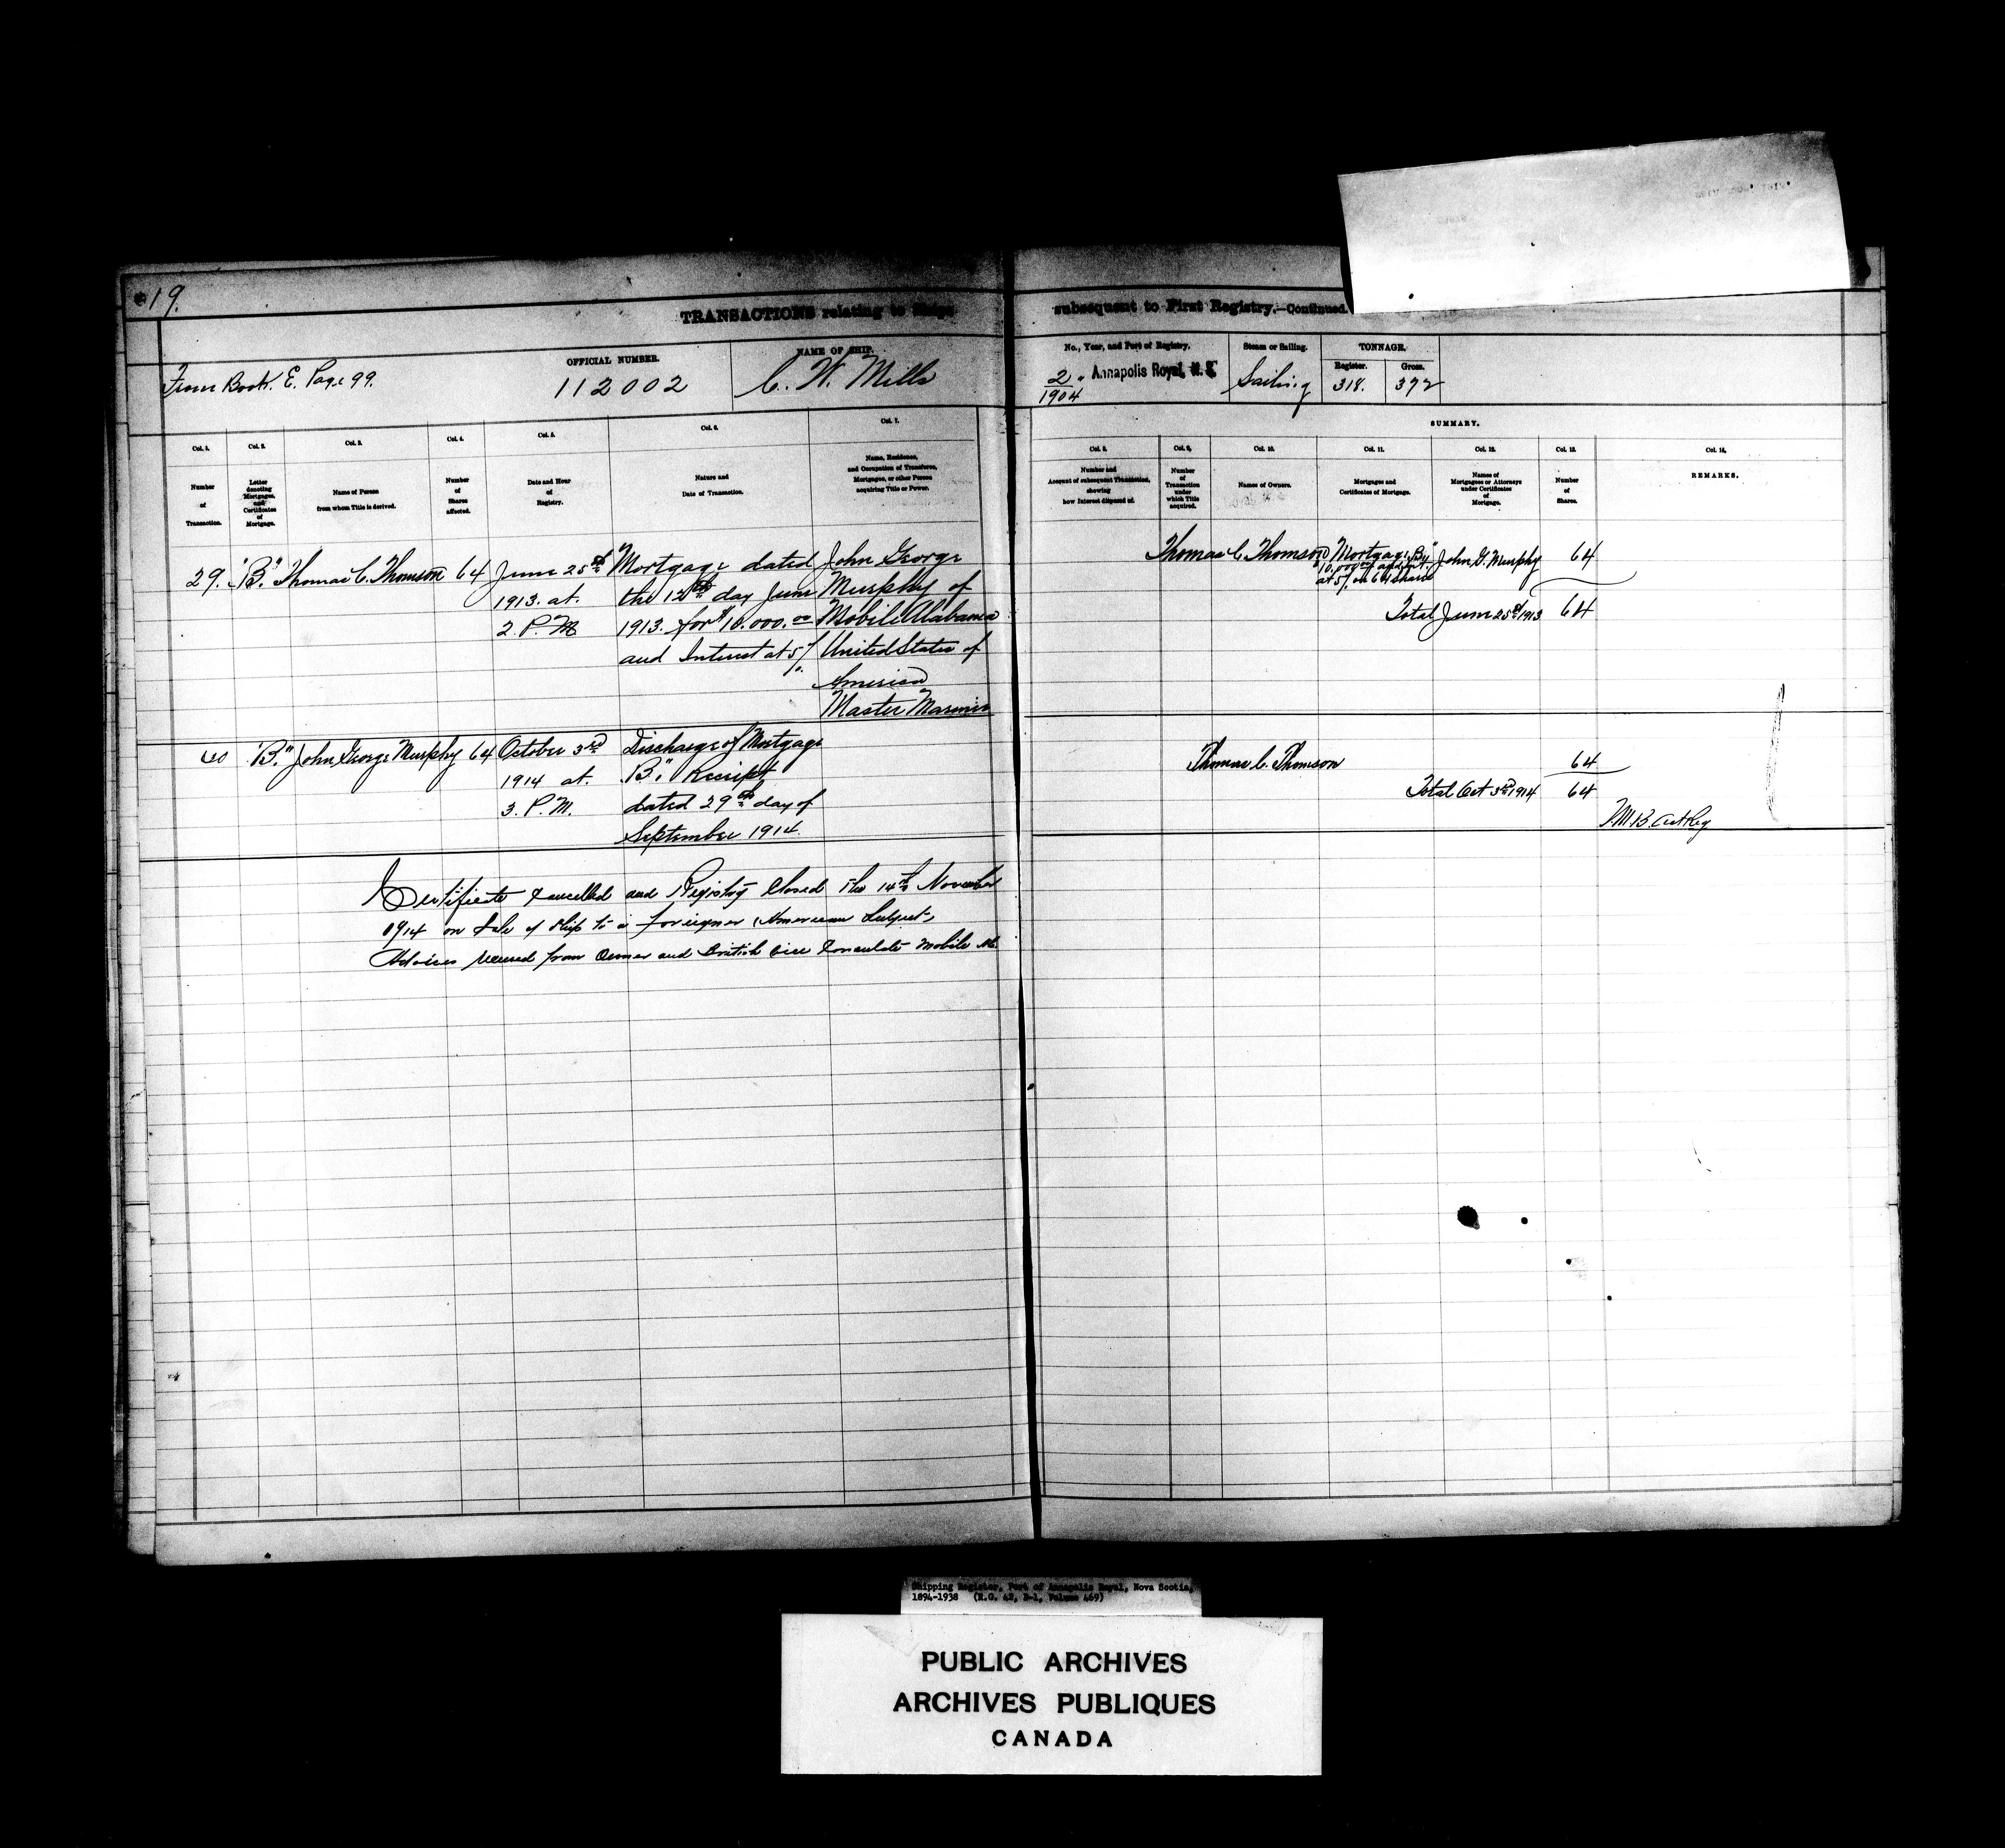 19.
TRANSACTIONS relating to Ships subsequent to First Registry.—Continued.
From Book. E. Page 99.
OFFICIAL NUMBER.
112002
NAME OF SHIP.
C. W. Mills
No., Year, and Port of Registry.
2/1904 Annapolis Royal, N. S.
Steam or Sailing.
Sailing
TONNAGE.
Register.
318.
Gross.
372
SUMMARY.
Col. 1.
Number
of
Transaction.
Col. 2.
Letter
denoting
Mortgages,
and
Certificates
of
Mortgage.
Col. 3.
Name of Person
from whom Title is derived.
Col. 4.
Number
of
Shares
affected.
Col. 5.
Date and Hour
of
Registry.
Col. 6.
Nature and
Date of Transaction.
Col. 7.
Name, Residence,
and Occupation of Transferee,
Mortgagee, or other Person
acquiring Title or Power.
Col. 8.
Number and
Account of subsequent Transaction,
showing
how Interest disposed of.
Col. 9.
Number
of
Transaction
under
which Title
acquired.
Col. 10.
Names of Owners.
Col. 11.
Mortgages and
Certificates of Mortgage.
Col. 12.
Names of
Mortgagees or Attorneys
under Certificates
of
Mortgage.
Col. 13.
Number
of
Shares.
Col. 14.
REMARKS.
29. "B." Thomas C. Thomson 64
June 25th
1913. at.
2. P. M
Mortgage dated
the 12th day June
1913. for $10.000.00
and Interest at 5%
John George
Murphy of
Mobile Alabama
United States of
America
Master Mariner
Thomas C. Thomson
Mortgage "B"
$10.000.00 and int.
at 5% on 64 shares
John G. Murphy 64
Total June 25th 1913 64
"B." John George Murphy 64
October 3rd
1914 at.
3. P. M.
Discharge of Mortgage
"B." Receipt
dated 29th day of
September 1914.
Thomas C. Thomson 64
Total Oct 3rd 1914 64
Certificate Cancelled and Registry Closed the 14th November
1914 on Sale of Ship to a foreigner (American Subject,
Advices received from Owner and British Vice Consulate Mobile Ala.
Shipping Register, Port of Annapolis Royal, Nova Scotia,
1894-1938 (R.G. 42, D-1, Volume 469)
PUBLIC ARCHIVES
ARCHIVES PUBLIQUES
CANADA